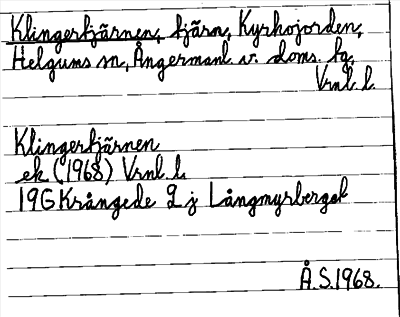 Klingertjärnen, tjärn, Kyrkojorden,
Helgums sn, Ångermanl. v. doms. tg,
Vrnl. l.
Klingertjärnen
ek (1968) Vrnl. l.
19G Krångede 9 j Långmyrberget
Å.S.1968.